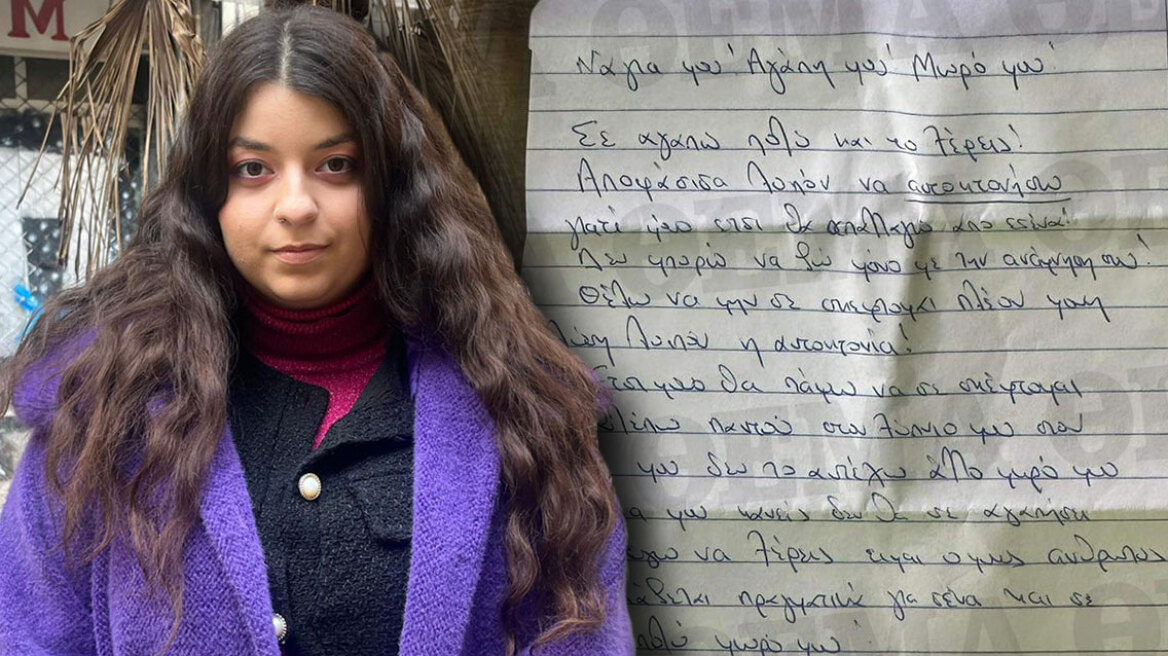 M
Νάγια μου Αγάπη μου Μωρό μου!
Σε αγαπώ πολύ και το ξέρεις!
Αποφάσισα λοιπόν να αυτοκτονήσω
γιατί μόνο έτσι θα απαλλαγώ από εσένα!
Δεν μπορώ να ζω μόνο με την ανάμνηση σου!
Θέλω να μην σε σκέφτομαι πλέον μονη
λύση λοιπόν η αυτοκτονία!
Έτσι μονο θα πάψω να σε σκέφτομαι
βλέπω παντού στο ξύπνιο μου στον
μου δεν το αντέχω άλλο μωρό μου
μου κανείς δεν θα σε αγαπήσει
να ξέρεις ειμαι ο μονος ανθρωπος
πραγματικά για σένα και σε
πολύ μωρό μου!